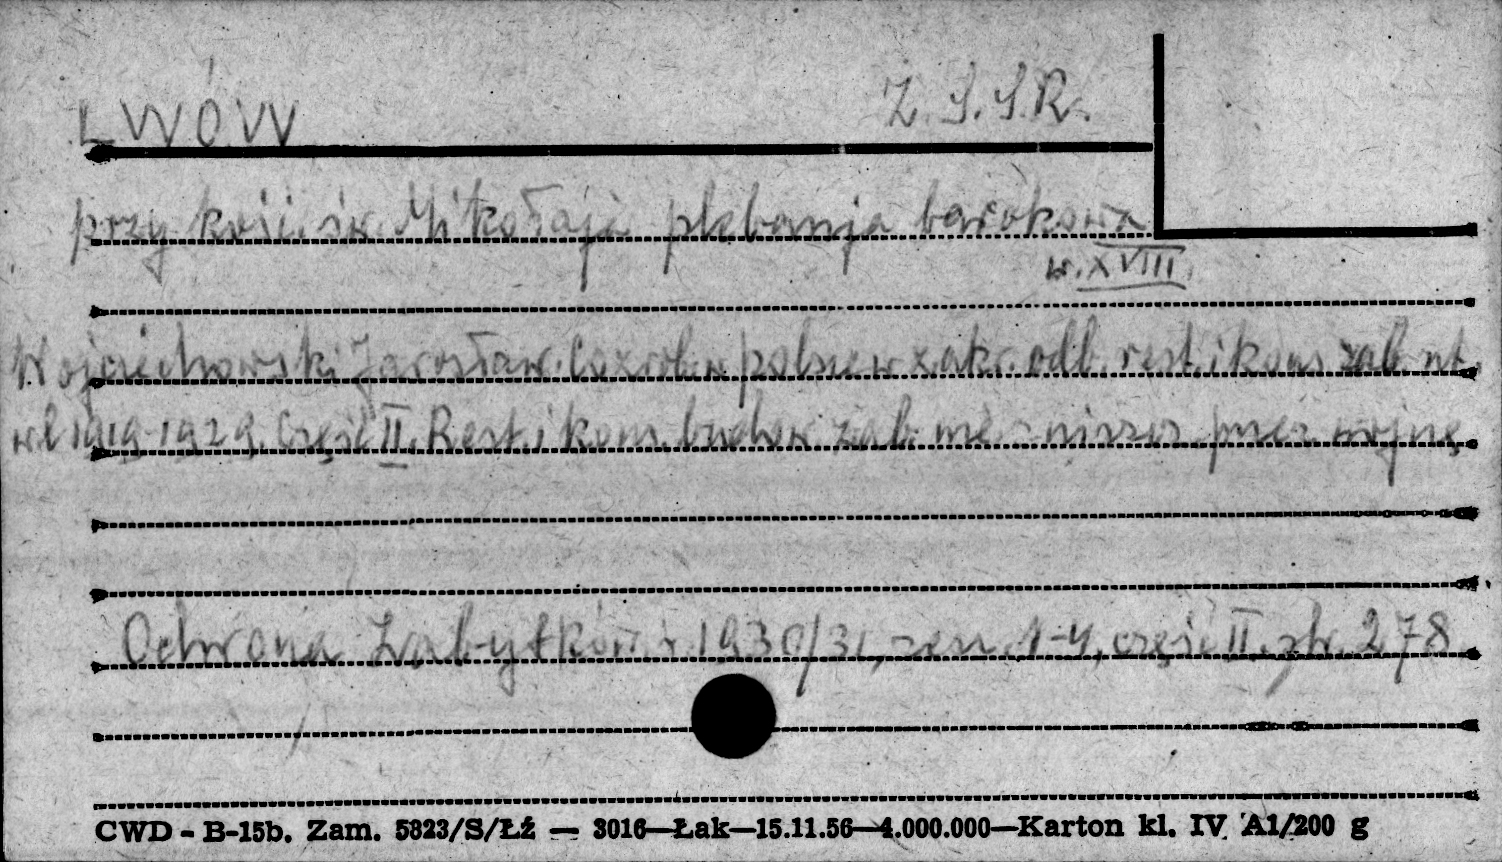 LWÓW Z.S.S.R.
przy kości. św. Mikołaja plebanja barokowa
w. XVIII.
Wojciechowski Jarosław. Co zrob. w Polsce w zakr. odb. rest. i kons. zab. szt.
w l. 1919-1929. Część II. Rest. i kons. budow. zab. nie zniszcz. przez wojnę
Ochrona Zabytków 1930/31, zesz. 1-4, część II. str. 278
CWD - B-15b. Zam. 5823/S/Łź — 3016—Łak—15.11.56—4.000.000—Karton kl. IV A1/200 g